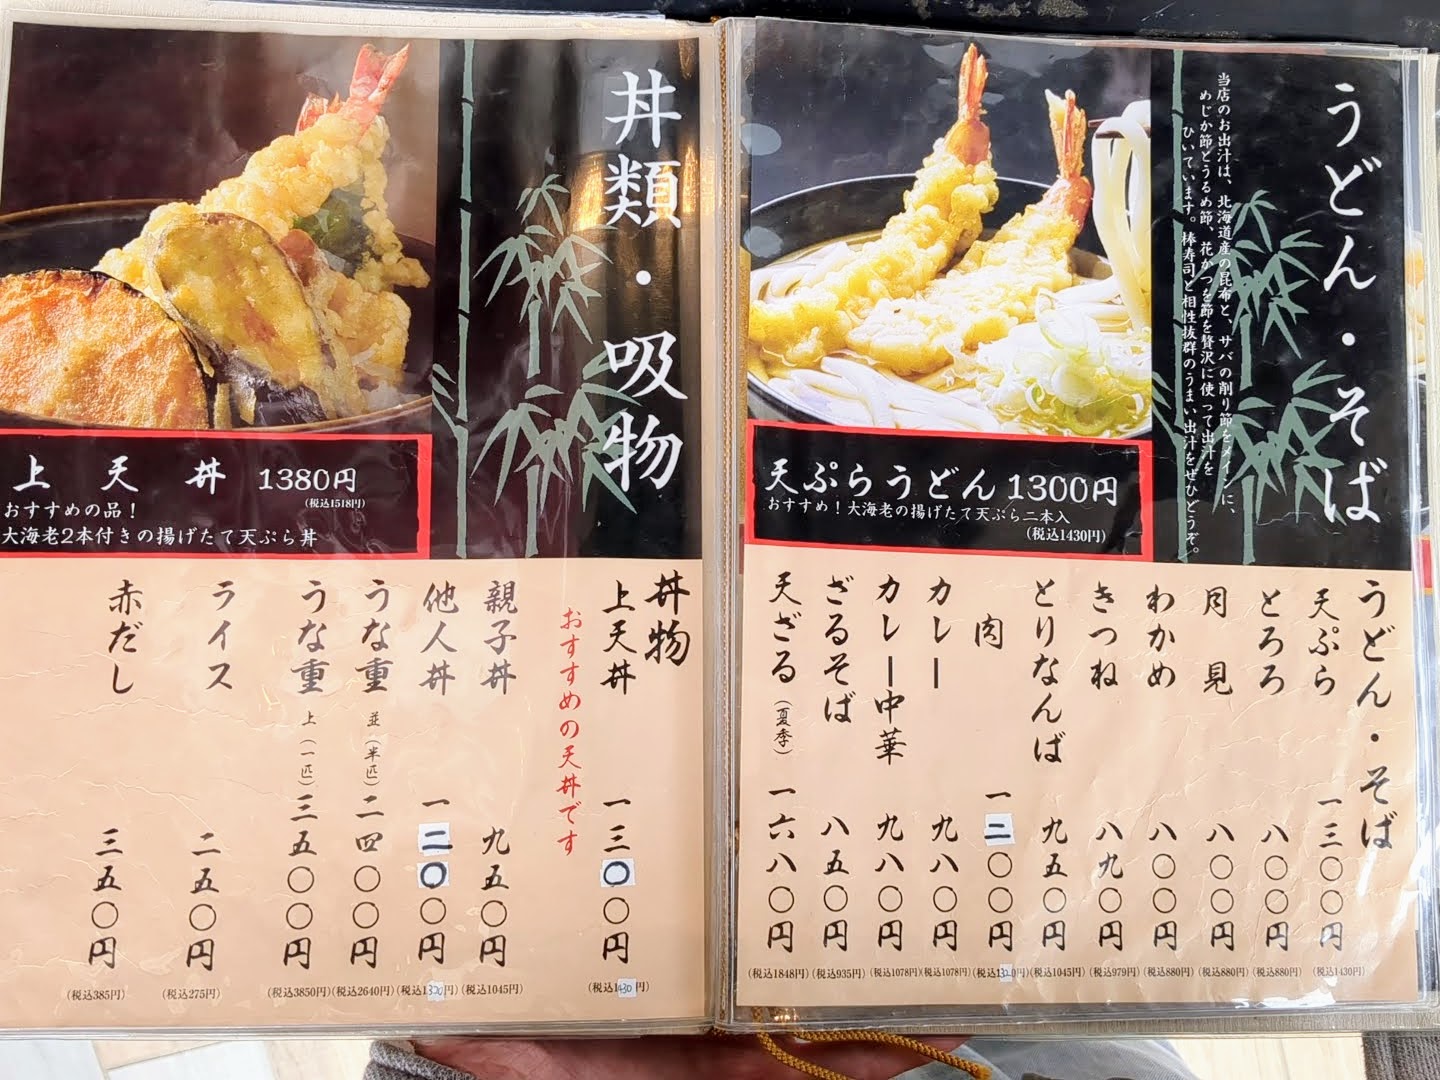 丼類・吸物
上天丼 1380円
(税込1518円)
おすすめの品！
大海老2本付きの揚げたて天ぷら丼
丼物
上天丼 一三〇〇円
(税込1430円)
おすすめの天丼です
親子丼 九五〇円
(税込1045円)
他人丼 一二〇〇円
(税込1320円)
うな重 並(半匹) 二四〇〇円
(税込2640円)
うな重 上(一匹) 三五〇〇円
(税込3850円)
ライス 二五〇円
(税込275円)
赤だし 三五〇円
(税込385円)
うどん・そば
当店のお出汁は、北海道産の昆布と、サバの削り節をメインに、
めじか節とうるめ節、花かつを節を贅沢に使って出汁を
ひいています。棒寿司と相性抜群のうまい出汁をぜひどうぞ。
天ぷらうどん 1300円
おすすめ！大海老の揚げたて天ぷら二本入
(税込1430円)
うどん・そば
天ぷら 一三〇〇円
(税込1430円)
とろろ 八〇〇円
(税込880円)
月見 八〇〇円
(税込880円)
わかめ 八〇〇円
(税込880円)
きつね 八九〇円
(税込979円)
とりなんば 九五〇円
(税込1045円)
肉 一二〇〇円
(税込1320円)
カレー 九八〇円
(税込1078円)
カレー中華 九八〇円
(税込1078円)
ざるそば 八五〇円
(税込935円)
天ざる(夏季) 一六八〇円
(税込1848円)